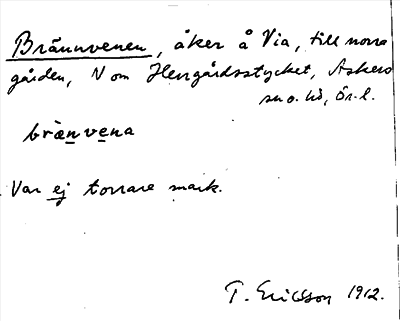 Brännvenen, åker å Via, till norra
gården, N om Herrgårdsstycket, Askers
sn o. hd, Ör. l.
brænvena
Var ej torrare mark.
T. Ericsson 1912.